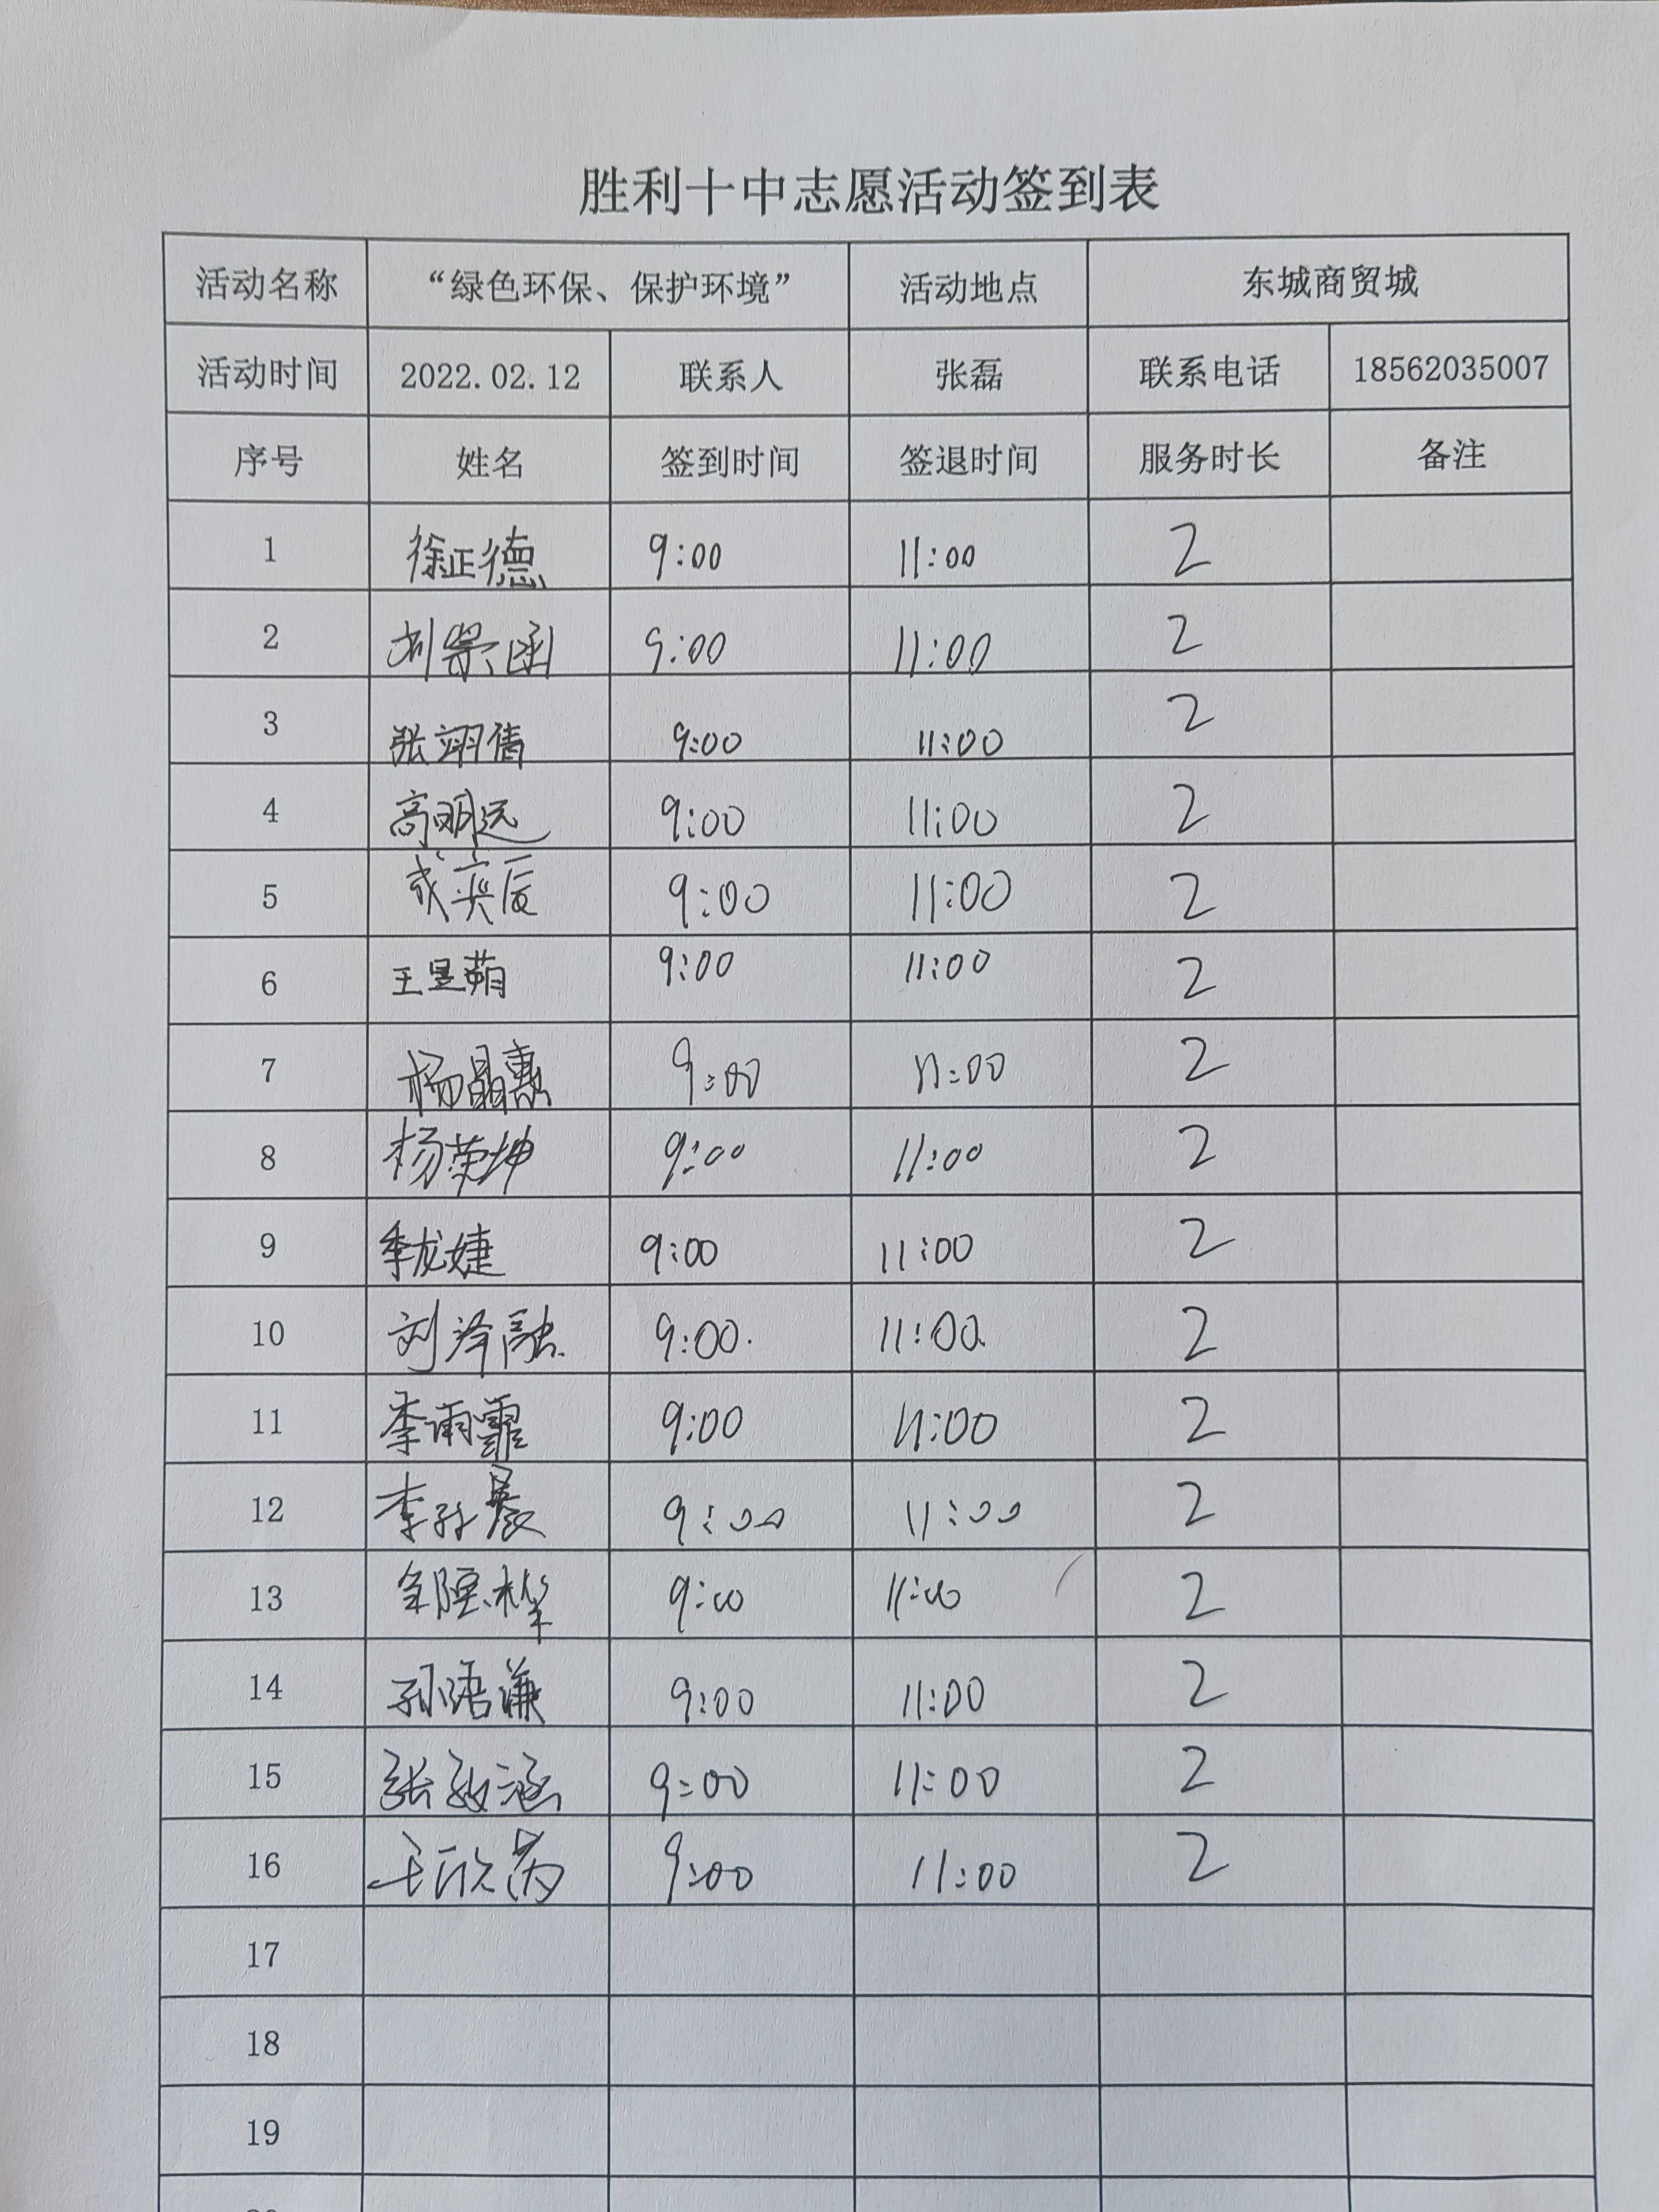 胜利十中志愿活动签到表
活动名称 “绿色环保、保护环境” 活动地点 东城商贸城
活动时间 2022.02.12 联系人 张磊 联系电话 18562035007
序号 姓名 签到时间 签退时间 服务时长 备注
1 徐正德 9:00 11:00 2
2 刘 函 9:00 11:00 2
3 张翊倩 9:00 11:00 2
4 高明远 9:00 11:00 2
5 成奕辰 9:00 11:00 2
6 王昱蒴 9:00 11:00 2
7 杨晶惠 9:00 11:00 2
8 杨荣坤 9:00 11:00 2
9 季龙婕 9:00 11:00 2
10 刘泽融 9:00. 11:00. 2
11 李雨霏 9:00 11:00 2
12 李 9:00 11:00 2
13 9:00 11:00 2
14 孙语谦 9:00 11:00 2
15 张 涵 9:00 11:00 2
16 王欣芮 9:00 11:00 2
17
18
19